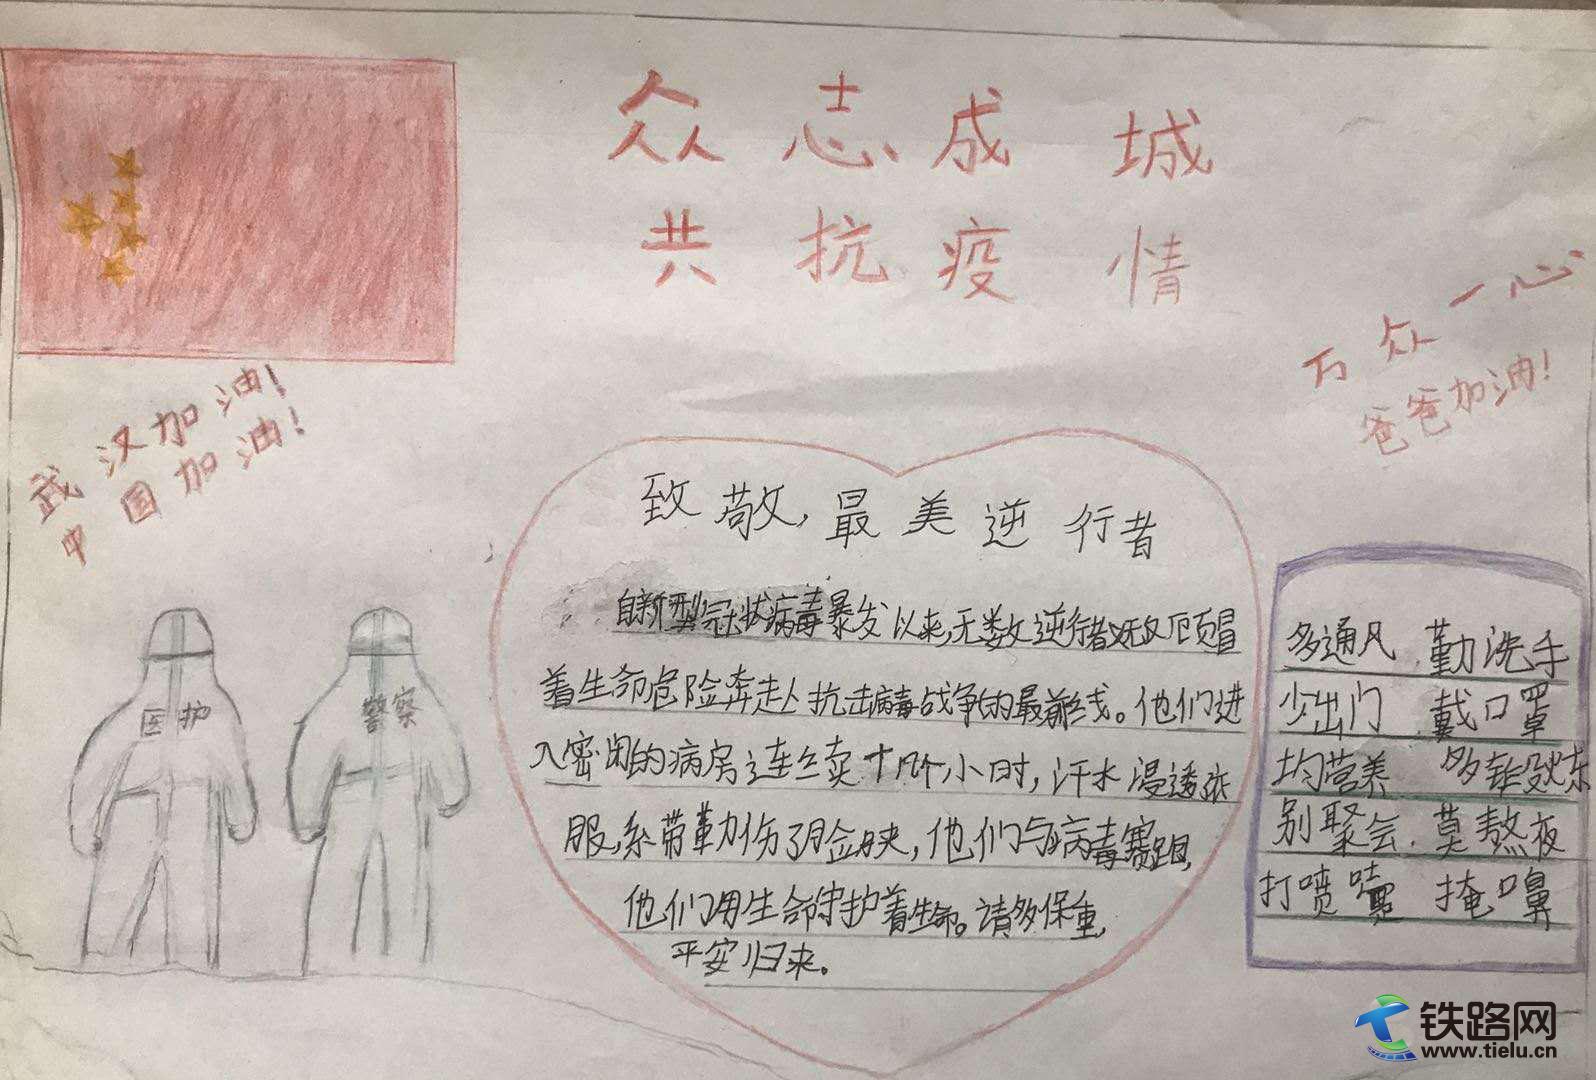 众志成城
共抗疫情
万众一心
爸爸加油!
武汉加油!
中国加油!
致敬,最美逆行者
自新型冠状病毒暴发以来,无数逆行者义无反顾冒
着生命危险奔赴抗击病毒战争的最前线。他们进
入密闭的病房连续十几个小时,汗水浸透衣
服,系带勒伤了脸颊,他们与病毒赛跑,
他们用生命守护着生命。请多保重,
平安归来。
医护
警察
多通风 勤洗手
少出门 戴口罩
均营养 多锻炼
别聚会 莫熬夜
打喷嚏 掩口鼻
铁路网
www.tielu.cn